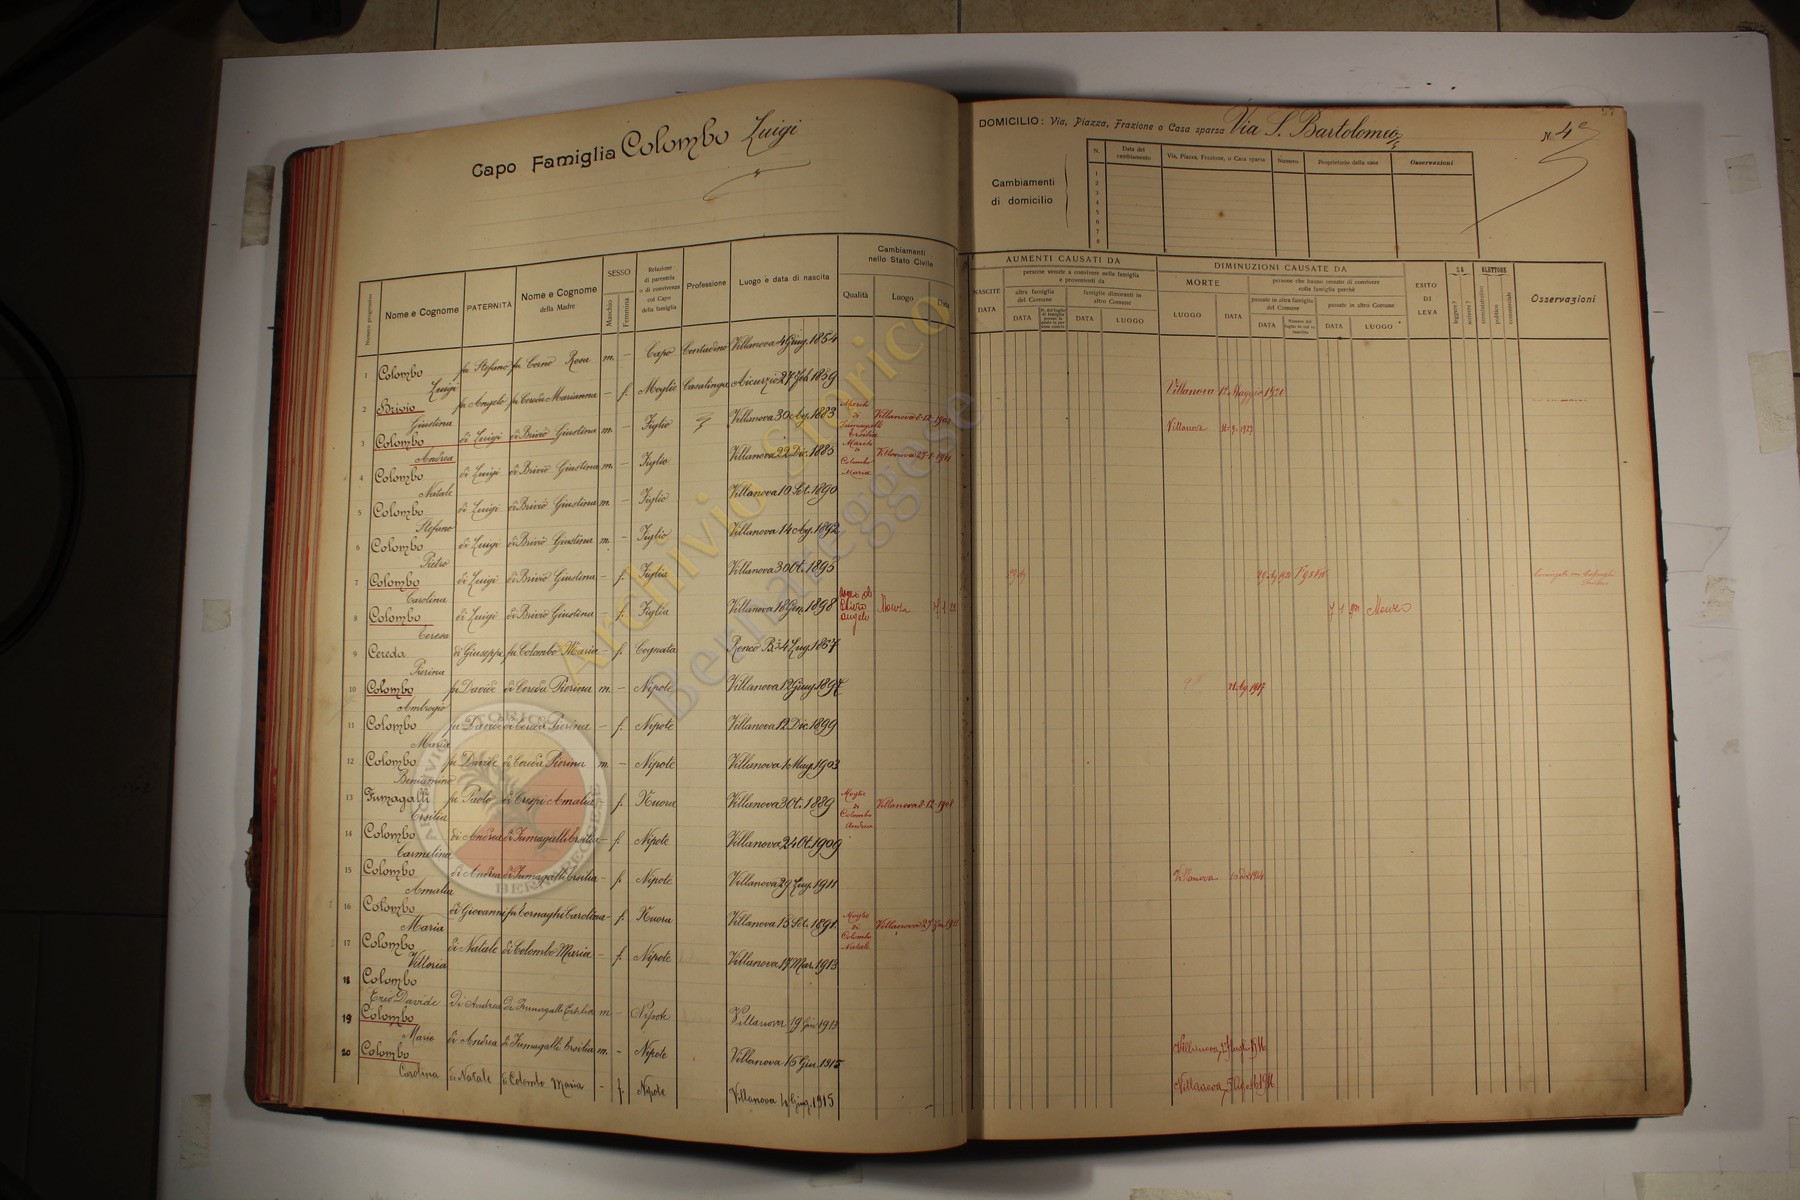 Capo Famiglia Colombo Luigi
DOMICILIO: Via, Piazza, Frazione o Casa sparsa Via S. Bartolomeo
N. 4
Cambiamenti di domicilio
N. Data del cambiamento Via, Piazza, Frazione, o Casa sparsa Numero Proprietario della casa Osservazioni
1
2
3
4
5
6
7
8
Numero progressivo Nome e Cognome PATERNITÀ Nome e Cognome della Madre SESSO Maschio Femmina Relazione di parentela o di convivenza col Capo della famiglia Professione Luogo e data di nascita Cambiamenti nello Stato Civile Qualità Luogo Data
NASCITE DATA AUMENTI CAUSATI DA persone venute a convivere nella famiglia e provenienti da altra famiglia del Comune DATA famiglie dimoranti in altro Comune DATA LUOGO
DIMINUZIONI CAUSATE DA MORTE LUOGO DATA persone che hanno cessato di convivere colla famiglia perchè passate in altra famiglia del Comune DATA passate in altro Comune DATA LUOGO
ESITO DI LEVA SA leggere? scrivere? ELETTORE amministrativo politico commerciale Osservazioni
1 Colombo Luigi fu Stefano fu Corno Rosa m. – Capo Contadino Villanova 4 Giug. 1854
2 Brivio Giustina fu Angelo fu Cereda Marianna – f. Moglie Casalinga Aicurzio 27 Feb. 1859 Villanova 12 Maggio 1921
3 Colombo Andrea di Luigi di Brivio Giustina m. – Figlio Villanova 30 Ag. 1883 Marito di Fumagalli Ersilia Villanova 8-12-1908 Villanova
4 Colombo Natale di Luigi di Brivio Giustina m. – Figlio Villanova 22 Dic. 1885 Marito di Colombo Maria Villanova
5 Colombo Stefano di Luigi di Brivio Giustina m. – Figlio Villanova 10 Set. 1890
6 Colombo Pietro di Luigi di Brivio Giustina m. – Figlio Villanova 14 Ag. 1892
7 Colombo Carolina di Luigi di Brivio Giustina – f. Figlia Villanova 30 Ot. 1895
8 Colombo Teresa di Luigi di Brivio Giustina – f. Figlia Villanova 18 Gen. 1898 Monza Monza
9 Cereda Pierina di Giuseppe fu Colombo Maria – f. Cognata Ronco B. 4 Lug. 1867
10 Colombo Ambrogio fu Davide di Cereda Pierina m. – Nipote Villanova 12 Giug 1897 21 Ag. 1917
11 Colombo Maria fu Davide di Cereda Pierina – f. Nipote Villanova 12 Dic 1899
12 Colombo Beniamino fu Davide di Cereda Pierina m. – Nipote Villanova 1 Mag. 1903
13 Fumagalli Ersilia fu Paolo di Crespi Amalia – f. Nuora Villanova 3 Ot. 1889 Moglie di Colombo Andrea Villanova 8-12-1908
14 Colombo Carmelina di Andrea di Fumagalli Ersilia – f. Nipote Villanova 24 Ot 1909
15 Colombo Amalia di Andrea di Fumagalli Ersilia – f. Nipote Villanova 29 Lug. 1911 Villanova
16 Colombo Maria di Giovanni fu Cornaghi Carolina – f. Nuora Villanova 15 Set. 1891 Moglie di Colombo Natale Villanova
17 Colombo Vittoria di Natale di Colombo Maria – f. Nipote Villanova 17 Mar. 1913
18 Colombo Davide Di Andrea Di Fumagalli Ersilia m – Nipote Villanova 19 1913
19 Colombo Mario di Andrea di Fumagalli Ersilia m. – Nipote Villanova 15 Giu. 1915 Villanova
20 Colombo Carolina di Natale di Colombo Maria – f. Nipote Villanova Giug. 1915 Villanova, 5 Agosto 1916
Archivio Storico
Bernareggese